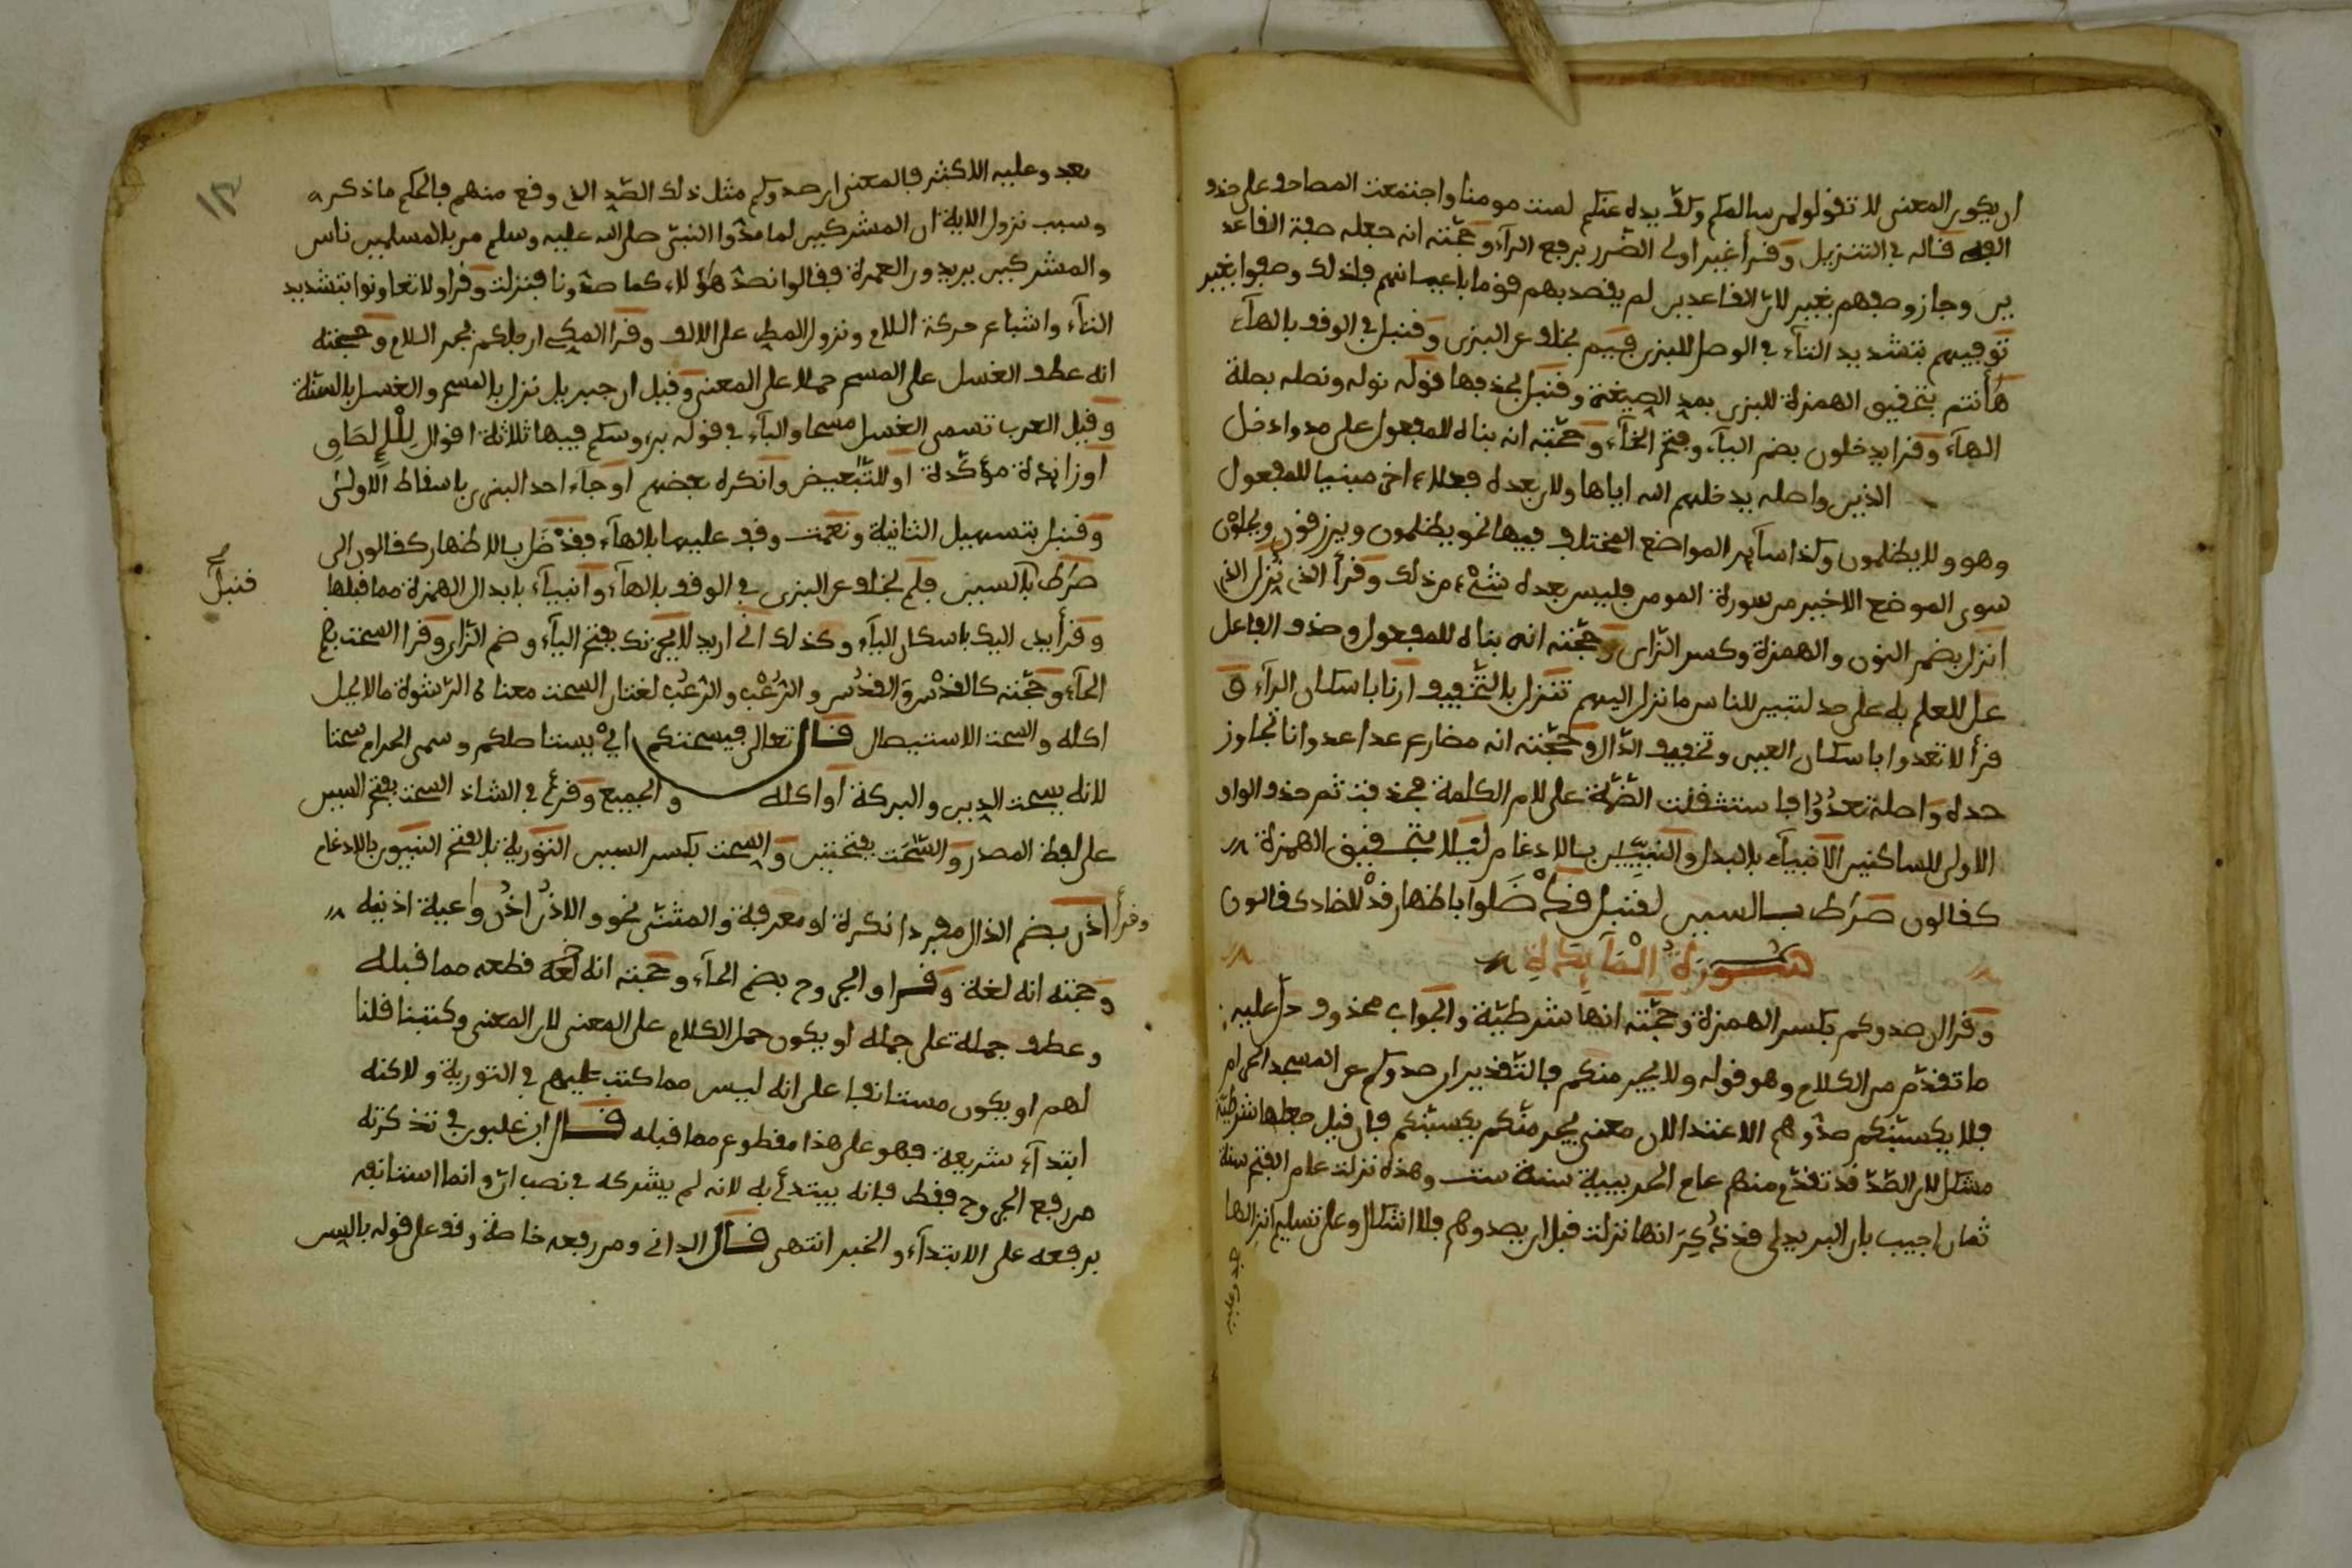 ان يكون المعنى لا تقولوا لمن سالمكم وكف يده عنكم لست مومنا واجتمعت المصاحف على حذف
الالف قاله في التنزيل وقرأ غير اولى الضرر برفع الرآء وحجته انه جعله صفة القاعد
ين وجاز وصفهم بغير لان القاعدين لم يقصد بهم قوما باعيانهم فلذلك وصفوا بغير
توفيهم بتشديد التآء في الوصل للبزى فيم بخلاف عن البزى وقنبل في الوقف بالهآء
هأنتم بتحقيق الهمزة للبزى بمد الصيغة وقنبل بحذفها قوله نوله ونصله بصلة
الهآء وقرا يدخلون بضم اليآء وفتح الخآء وحجته انه بناه للمفعول على حد وادخل
الذين واصله يدخلهم الله اياها ولان بعده فعلا اخر مبنيا للمفعول
وهو ولا يظلمون وكذا سآير المواضع المختلف فيها نحو يظلمون ويرزقون ويحلون
سوى الموضع الاخير من سورة المومن فليس بعده شيء من ذلك وقرأ الذي نزل الذي
انزل بضم النون والهمزة وكسر الزاى وحجته انه بناه للمفعول وحذف الفاعل
عل للعلم به على حد لتبين للناس ما نزل اليهم تنزل بالتخفيف ارنا باسكان الرآء و
قرأ لا تعدوا باسكان العين وتخفيف الدال وحجته انه مضارع عدا عدوانا تجاوز
حده واصله تعدووا فاستثقلت الضمة على لام الكلمة فحذفت ثم حذف الواو
الاولى للساكنين الانبيآء بالبدل والنبيين بالادغام ليلا بتحقيق الهمزة
كقالون صراط بالسين لقنبل فقد ضلوا باظهار قد للضاد كقالون
سورة المآيدة
وقرا ان صدوكم بكسر الهمزة وحجته انها شرطية والجواب محذوف دل عليه
ما تقدم من الكلام وهو قوله ولا يجرمنكم فالتقدير ان صدوكم عن المسجد الحرام
فلا يكسبنكم صدوهم الاعتدا لان معنى يجرمنكم يكسبنكم فان قيل جعلها شرطية
مشكل لان الصد قد تقدم منهم عام الحديبية سنة ست وهذه نزلت عام الفتح سنة
ثمان اجيب بان اليريدى قد ذكر انها نزلت قبل ان يصدوهم فلا اشكال وعلى تسليم انزالها
بعد وعليه
بعد وعليه الاكثر فالمعنى ان صدوكم مثل ذلك الصد الذي وقع منهم فالحكم ما ذكر
وسبب نزول الاية ان المشركين لما صدوا النبي صلى الله عليه وسلم مر بالمسلمين ناس
والمشركين يريدون العمرة فقالوا نصد هؤلاء كما صدونا فنزلت وقرا ولا تعاونوا بتشديد
التآء واشباع حركة اللام ونزول المط على الالف وقرا المكي ارجلكم بجر اللام وحجته
انه عطف الغسل على المسح حملا على المعنى وقيل ان جبريل نزل بالمسح والغسل بالسنة
وقيل العرب تسمى الغسل مسحا والبآء في قوله برءوسكم فيها ثلاثة اقوال للالصاق
او زايدة مؤكدة او للتبعيض وانكره بعضهم او جآء احد البزى باسقاط الاولى
وقنبل بتسهيل الثانية ونعمت وقف عليها بالهآء فقد ضل بالاظهار كقالون الى
صراط بالسين فلم بخلاف عن البزى في الوقف بالهآء وانبيآء بابدال الهمزة مما قبلها
قنبل
وقرأ يدى اليك باسكان اليآء وكذلك اني اريد لا يحزنك بفتح اليآء وضم الزاى وقرا السحت بضم
الحآء وحجته كالقدس والقدس والرعب والرعب لغتان السحت معناه الرشوة ما لا يحل
اكله والسحت الاستيصال قال تعالى فيسحتكم اى يستاصلكم وسمى الحرام سحتا
لانه يسحت الدين والبركة او اكله والجميع وقرئ في الشاذ السحت بفتح السين
على لفظ المصدر والسحت بفتحتين والسحت بكسر السين التورية بالفتح النبيون بالادغام
وقرأ اذن بضم الذال مفردا نكرة او معرفة والمثنى نحو والاذن اذن واعية اذنيه
وحجته انه لغة وقرا والجروح بضم الحآء وحجته انه لغة قطعه مما قبله
وعطف جملة على جملة او يكون حمل الكلام على المعنى لان المعنى وكتبنا قلنا
لهم او يكون مستانفا على انه ليس مما كتب عليهم في التورية ولاكنه
ابتدآء شريعة فهو على هذا مقطوع مما قبله قال ابن غلبون في تذكرته
من رفع الجروح فقط فانه يبتدئ به لانه لم يشركه في نصب ان وانما استانفه
برفعه على الابتدآء والخبر انتهى قال الداني ومن رفعه خاصة وقف على قوله بالسن